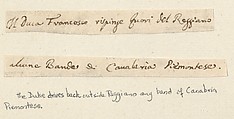 Il Duca Francesco rispinge fuori del Reggiano
alcune Bande di Cavaleria Piemontese.
The Duke drives back outside Reggiano any band of Cavalria
Piemontese.